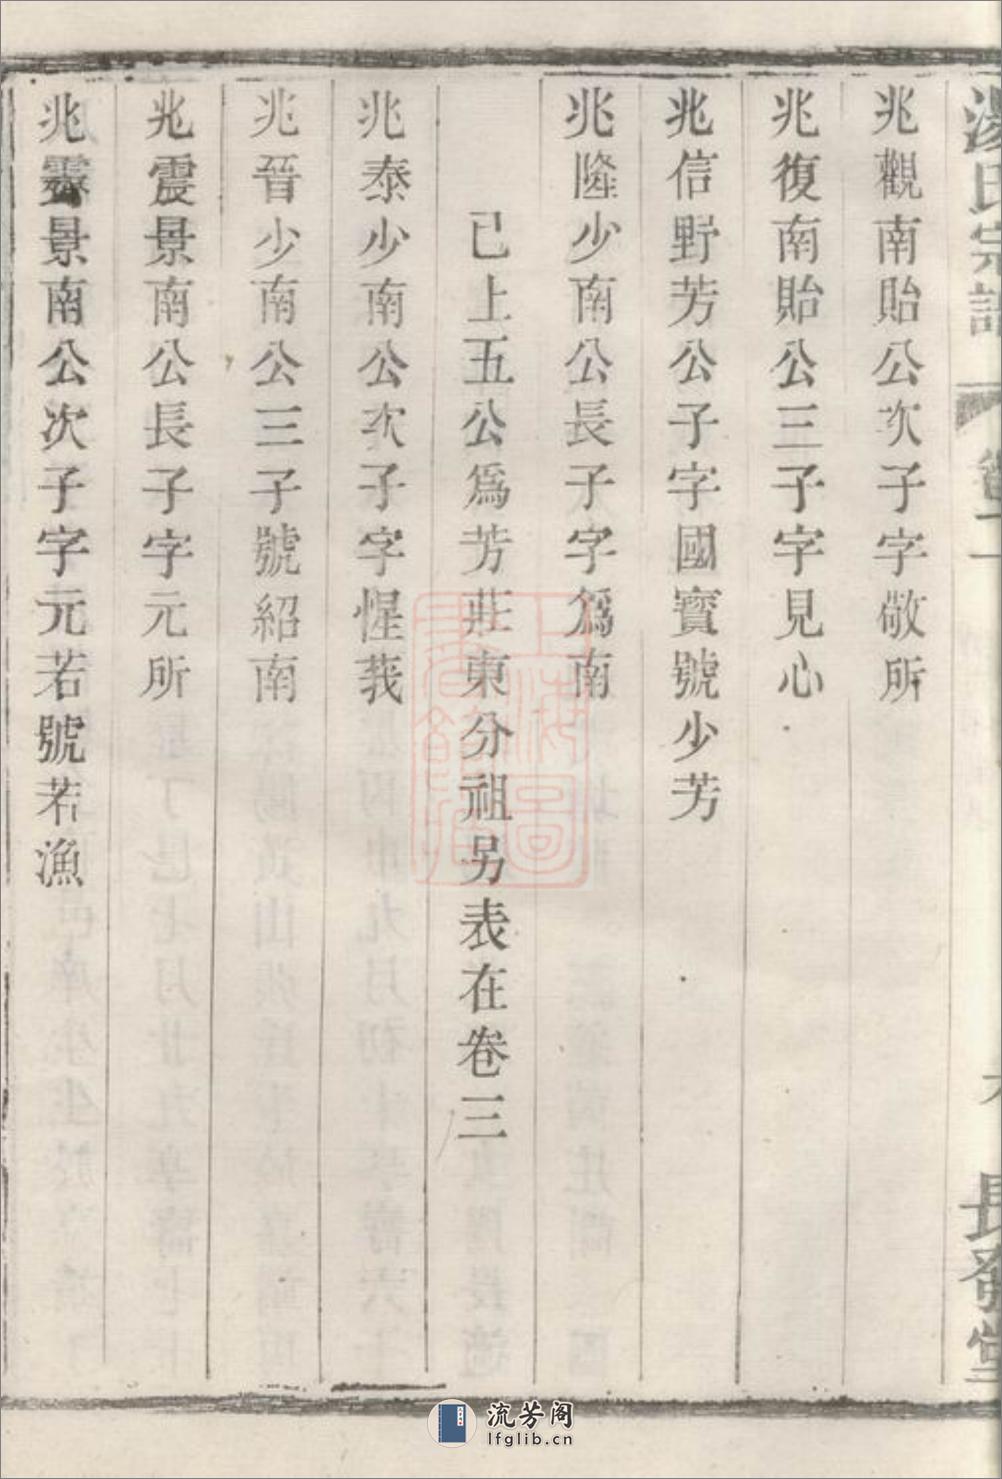 湯氏宗譜 長發堂
兆觀南貽公次子字敬所
兆復南貽公三子字見心
兆信野芳公子字國寶號少芳
兆隆少南公長子字爲南
已上五公爲芳莊東分祖另表在卷三
兆泰少南公次子字惺莪
兆晉少南公三子號紹南
兆震景南公長子字元所
兆景南公次子字元若號若漁
上海圖書館藏
流芳阁
lfglib.cn